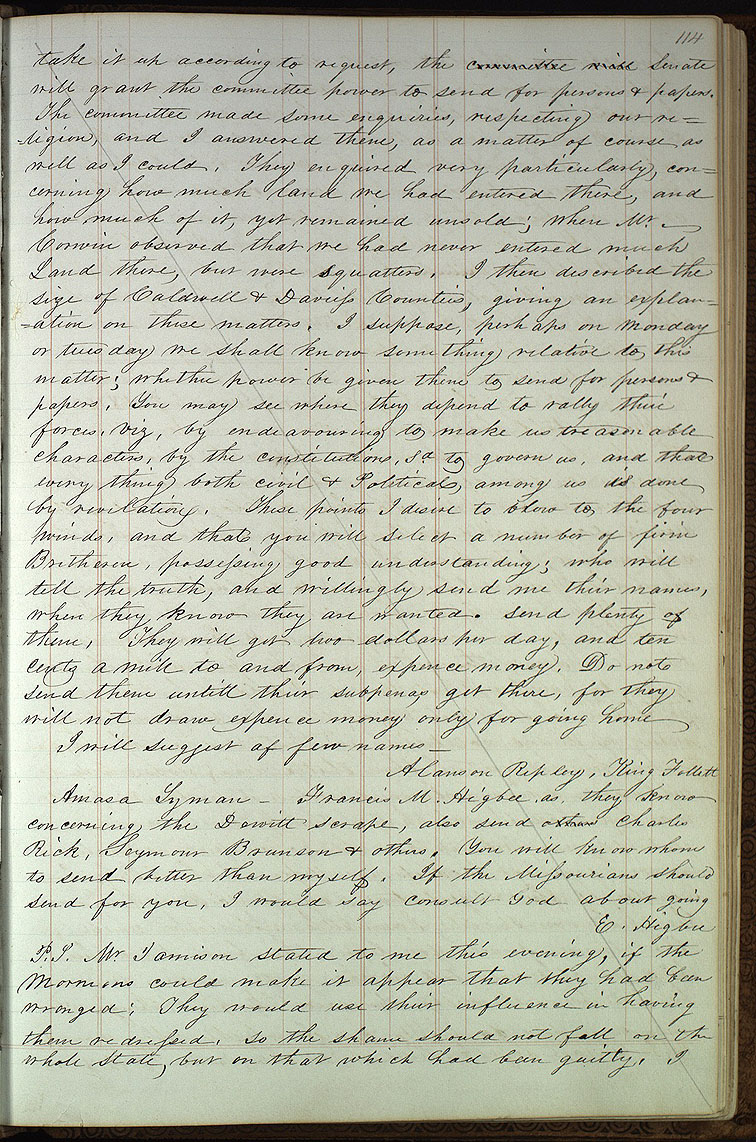 114
take it up according to request, the committee will Senate
will grant the committee power to send for persons & papers.
The committee made some enquiries, respecting our re=
ligion, and I answered them, as a matter of course, as
well as I could. They enquired very particularly, con=
cerning how much land we had entered there, and
how much of it, yet remained unsold; when Mr.
Corwin observed that we had never entered much
Land there, but were squatters. I then described the
size of Caldwell & Daviess Counties, giving an explan=
=ation on these matters. I suppose, perhaps on Monday
or tuesday we shall know something relative to this
matter; whether power be given them to send for persons &
papers. You may see where they depend to rally their
forces, viz, by endeavouring to make us treasonable
characters, by the constitutions, sd to govern us, and that
every thing both civil & Political, among us is done
by revilation. These points I desire to blow to the four
winds, and that you will select a number of firm
Bretheren, possessing good understanding; who will
tell the truth, and willingly send me their names,
when they know they are wanted. Send plenty of
them. They will get two dollars per day, and ten
cents a mile to and from, expence money. Do not
send them untill their subpenas get there, for they
will not draw expence money only for going home
I will suggest af few names—
Alanson Repley, King Follett
Amasa Lyman — Francis M. Higbee, as they know
concerning the Dewitt scrape, also send Charles
Rich, Seymour Brunson & others. You will know whom
to send better than myself. If the Missourians should
send for you, I would say consult God about going
E. Higbee
P.S. Mr Jamison stated to me this evening, if the
Mormons could make it appear that they had been
wronged; They would use their influence in having
them redressed. so the shame should not fall on the
whole state, but on that which had been guilty. I